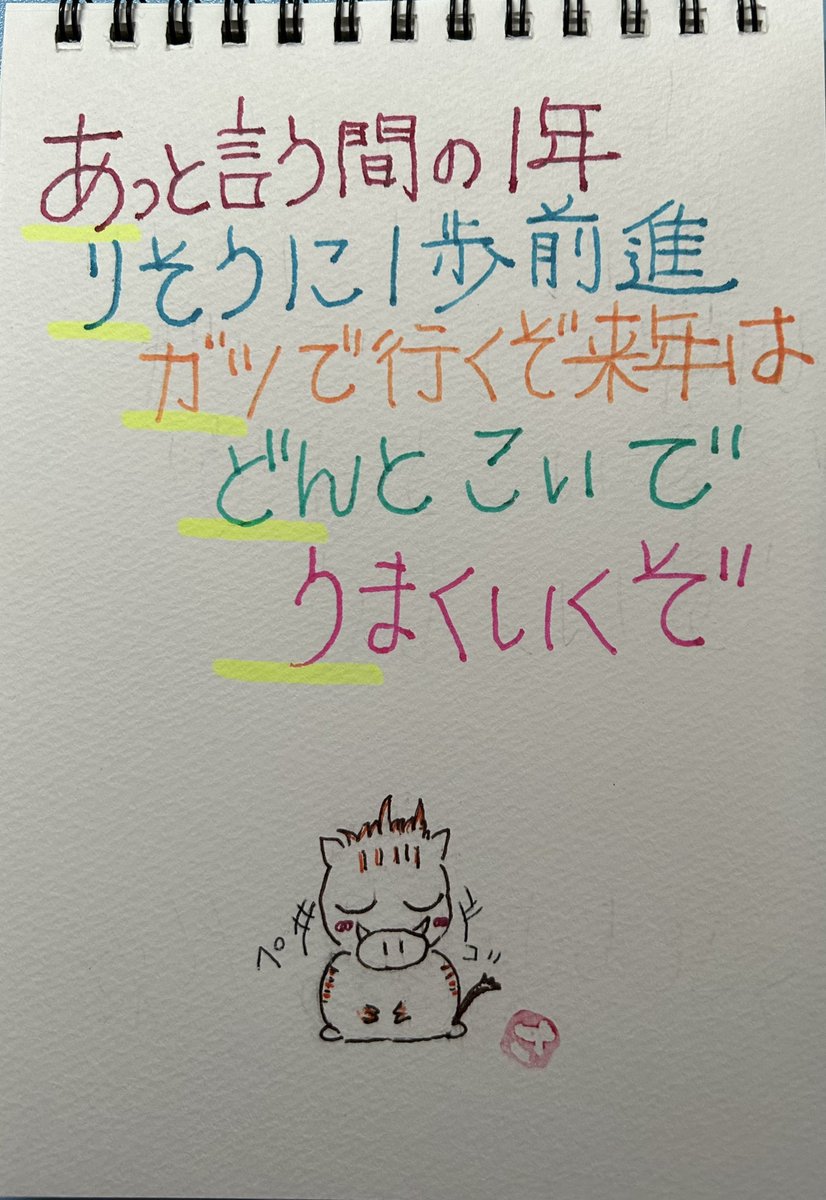 あっと言う間の1年
りそうに1歩前進
ガツで行くぞ来年は
どんとこいで
うまくいくぞ
ペコッ